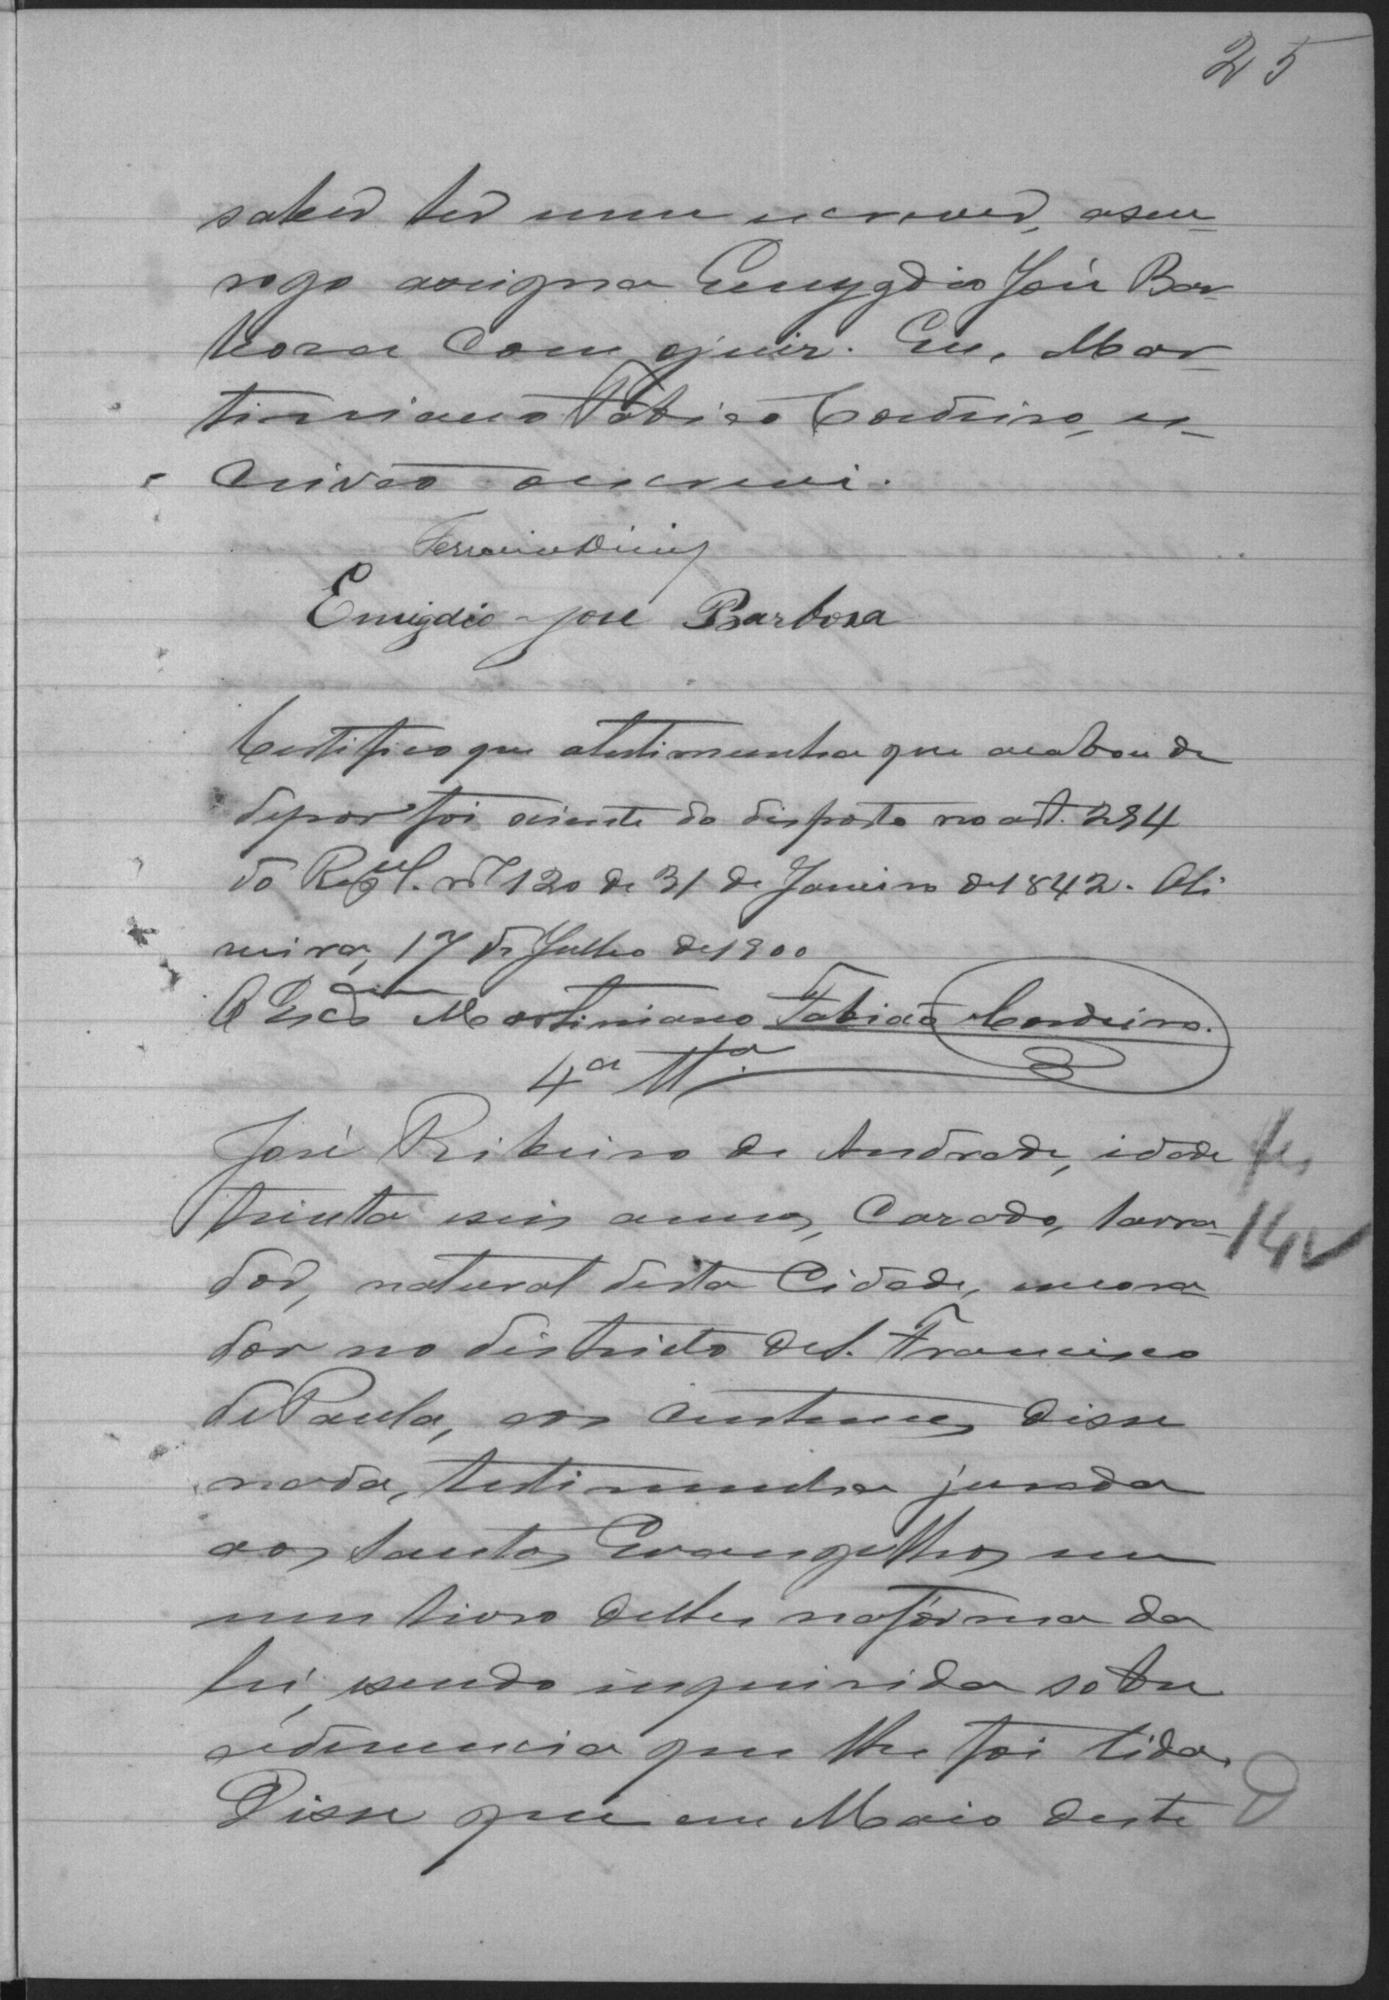 25
saber ler nem escrever, a seu
rogo assigna Emygdio José Bar-
bosa com o juiz. Eu, Mar-
tiniano Fabião Cordeiro, es-
crivão o escrevi.
Ferreira Diniz
Emigdio José Barbosa
Certifico que a testimunha que acabou de
depor foi sciente do disposto no art. 294
do Regul. nº 120 de 31 de Janeiro de 1842. Oli
veira, 17 de Julho de 1900
O Escrivão Martiniano Fabião Cordeiro.
4ª Ttª.
José Ribeiro de Andrade, idade
trinta seis annos, casado, lavra-
dor, natural desta Cidade, mora-
dor no districto de S. Francisco
de Paula, aos costumes disse
nada, testimunha jurada
aos Santos Evangelhos em
um livro delles na fórma da
lei, sendo inquirida sobre
a denuncia que lhe foi lida.
Disse que em Maio deste
fls
14v